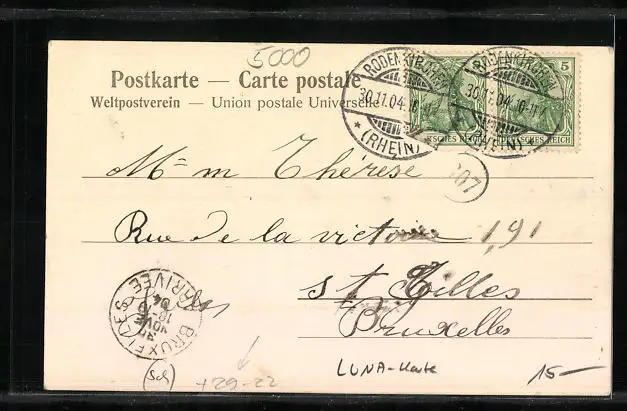 5000
Postkarte — Carte postale
Weltpostverein — Union postale Universelle
RODENKIRCHEN
30.11.04.
(RHEIN)
RODENKIRCHEN
30.11.04.
(RHEIN)
5
DEUTSCHES REICH
DEUTSCHES REICH
M=m Thérèse
107
Rue de la victoire 191
St Gilles
Bruxelles
BRUXELLES
ARRIVÉE
30
NOVE
04
LUNA-Karte
15-
(Sch)
+29-22